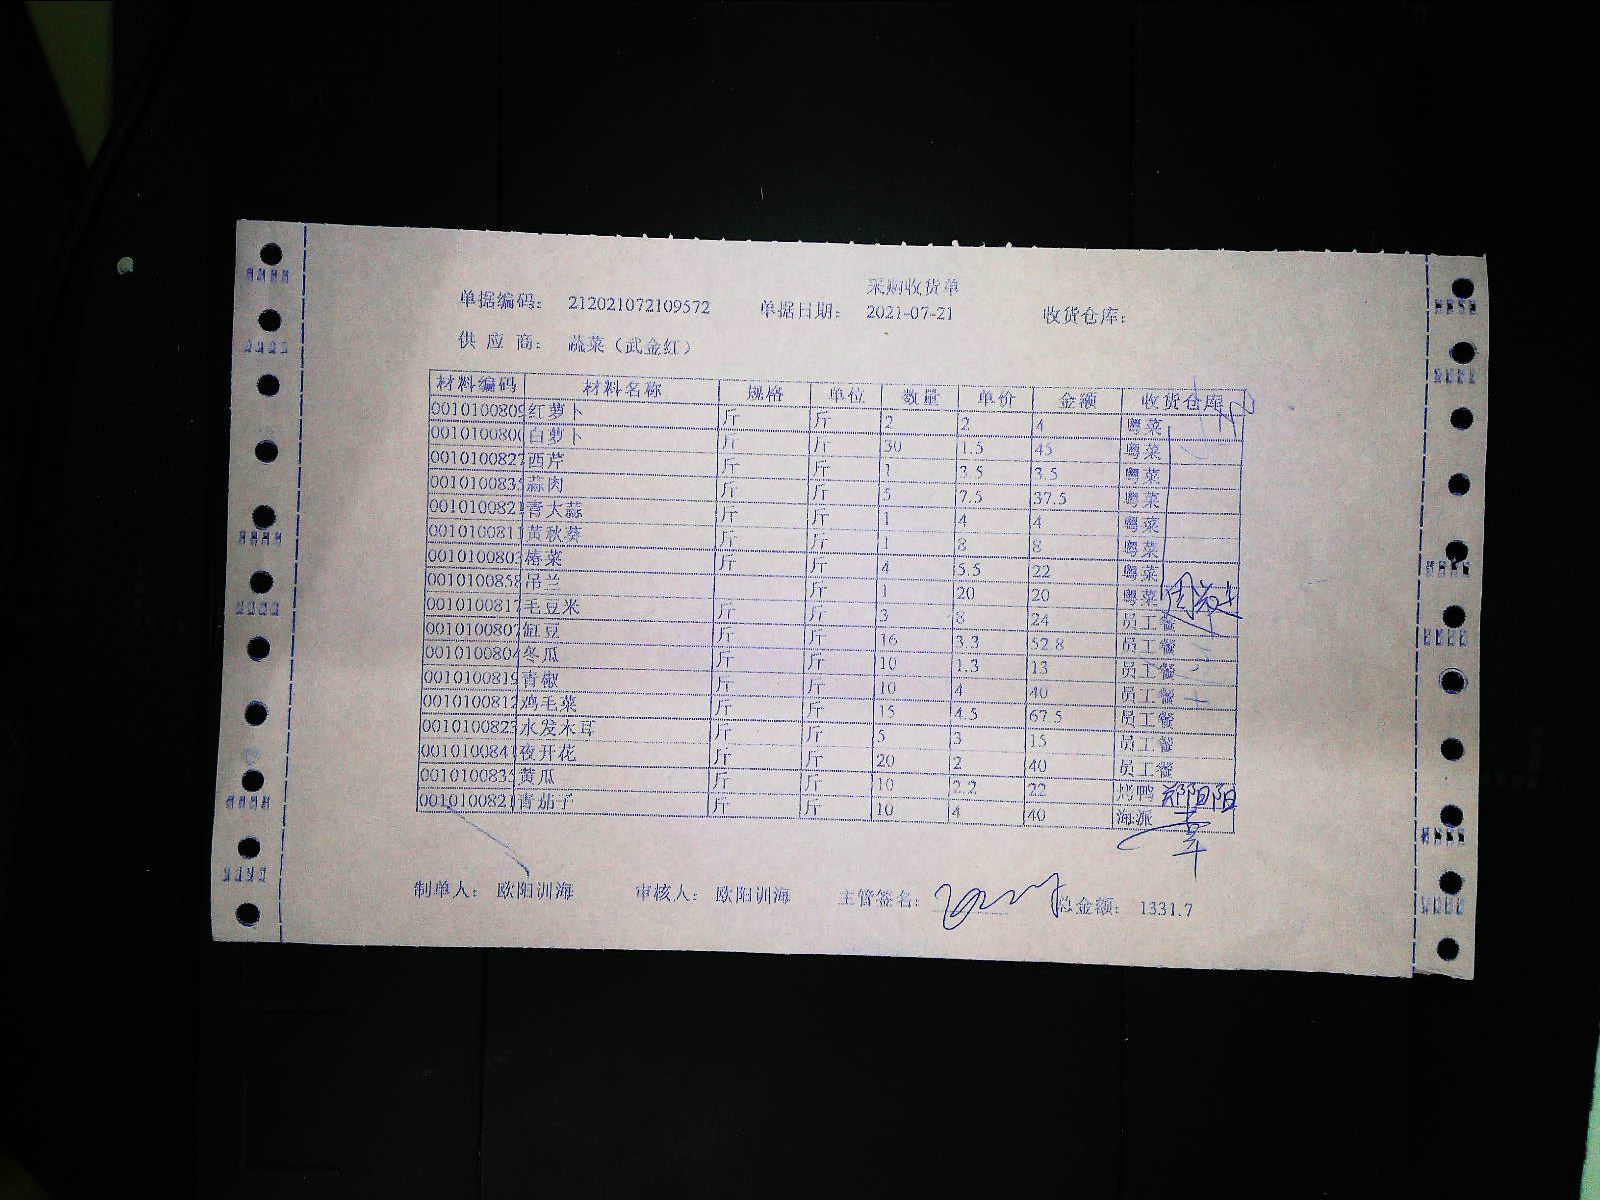 采购收货单
单据编码： 212021072109572 单据日期： 2021-07-21 收货仓库：
供 应 商： 蔬菜（武金红）
材料编码 材料名称 规格 单位 数量 单价 金额 收货仓库
0010100809 红萝卜 斤 斤 2 2 4 粤菜
0010100800 白萝卜 斤 斤 30 1.5 45 粤菜
0010100827 西芹 斤 斤 1 3.5 3.5 粤菜
0010100835 蒜肉 斤 斤 5 7.5 37.5 粤菜
0010100821 青大蒜 斤 斤 1 4 4 粤菜
0010100811 黄秋葵 斤 斤 1 8 8 粤菜
0010100803 椿菜 斤 斤 4 5.5 22 粤菜
0010100858 吊兰 斤 1 20 20 粤菜
0010100817 毛豆米 斤 斤 3 8 24 员工餐
0010100807 缸豆 斤 斤 16 3.3 52.8 员工餐
0010100804 冬瓜 斤 斤 10 1.3 13 员工餐
0010100819 青椒 斤 斤 10 4 40 员工餐
0010100812 鸡毛菜 斤 斤 15 4.5 67.5 员工餐
0010100823 水发木耳 斤 斤 5 3 15 员工餐
0010100841 夜开花 斤 斤 20 2 40 员工餐
0010100833 黄瓜 斤 斤 10 2.2 22 烤鸭 郑阳阳
0010100821 青茄子 斤 斤 10 4 40 海派
制单人： 欧阳训海 审核人： 欧阳训海 主管签名： 总金额： 1331.7